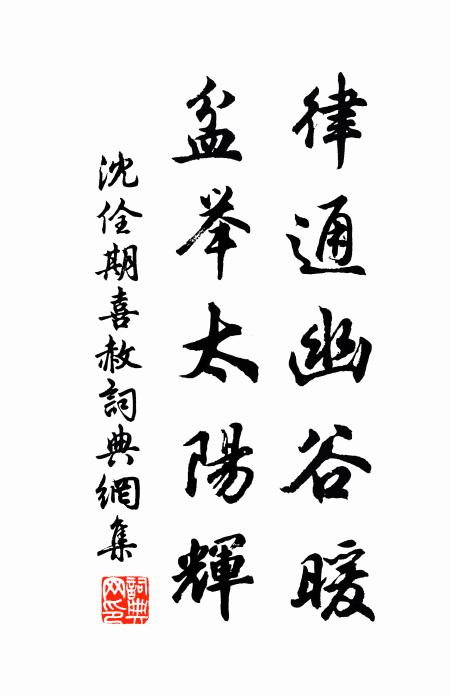 律通幽谷暖
盆举太陽輝
沈佺期喜赦詞典網集
詞典網印